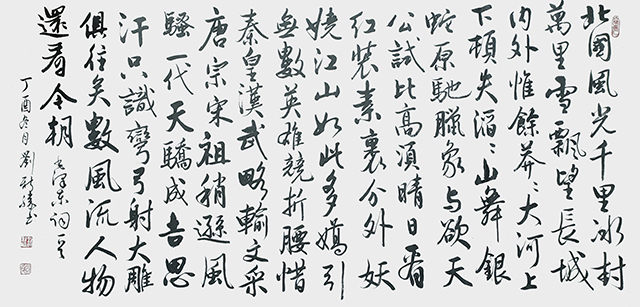 北國風光千里冰封
萬里雪飄望長城
内外惟餘莽〻大河上
下頓失滔〻山舞銀
蛇原馳臘象与欲天
公試比高須晴日看
紅裝素裹分外妖
嬈江山如此多嬌引
無數英雄競折腰惜
秦皇漢武略輸文采
唐宗宋祖稍遜風
騷一代天驕成吉思
汗只識彎弓射大雕
俱往矣數風流人物
還看今朝 毛澤東詞
丁酉冬月劉書